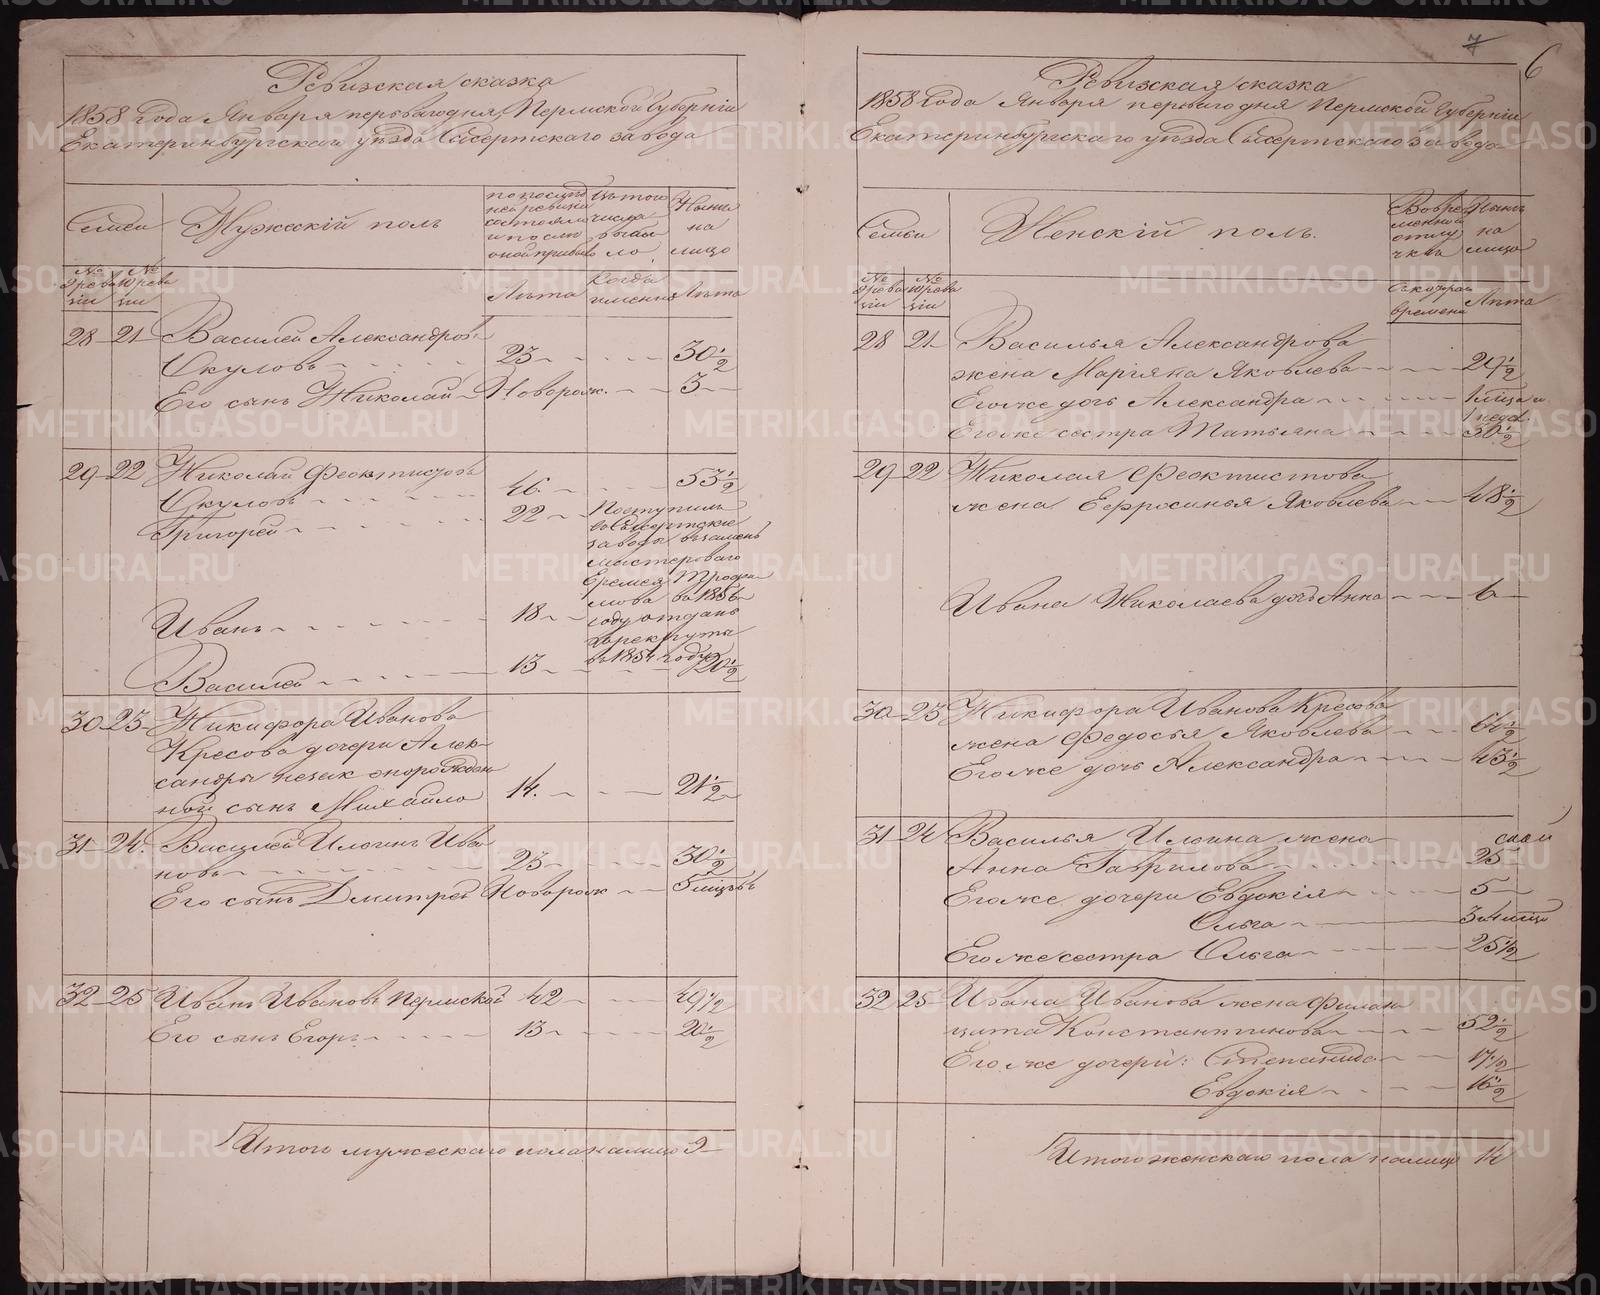 Ревизская сказка
1858 Года Января перваго дня, Пермской Губернiи
Екатеринбургскаго уѣзда Сысертскаго завода
Семьи
Мужескiй полъ
по послѣд
ней ревизiи
состояло
и после
оной прибыло
Изъ того
числа
выбы
ло
Нынѣ
на
лицо
№ ревизiи
№ 10 ревизiи
Лѣта
Когда
именно
Лѣта
28 21 Василей Александровъ
Окуловъ 23 30 1/2
Его сынъ Николай Новорож. 3
29 22 Николай Феоктистовъ
Окуловъ 46 53 1/2
Григорей 22 Поступилъ
въ Сысертскiе
заводы взаменъ
мастероваго
Еремея Трофи
мова въ 1856
Иванъ 18 году отданъ
въ рекруты
въ 1854 году
Василей 13 20 1/2
30 23 Никифора Иванова
Кресова дочери Алек
сандры незак онорожден
ной сынъ Михайло 14. 21 1/2
31 24. Василей Илоинъ Ива
новъ 23 30 1/2
Его сынъ Дмитрей Новорож 5 мцовъ
32 25 Иванъ Ивановъ Пермской 42 49 1/2
Его сынъ Егоръ 13 20 1/2
Итого мужескаго пола налицо 9
7
6
Ревизская сказка
1858 Года Января перваго дня Пермской Губернiи
Екатеринбургскаго уѣзда Сысертскаго завода
Семьи
Женскiй полъ.
Во вре
менной
отлу
чкѣ
Нынѣ
на
лицо
№ ревизiи
№ 10 ревизiи
Съ котораго
времени
Лѣта
28 21 Василья Александрова
жена Марiяна Яковлева 29 1/2
Его же дочь Александра 1 мца и
1 нед
Его же сестра Татьяна 30 1/2
29 22 Николая Феоктистова
жена Ефросинья Яковлева 48 1/2
Ивана Николаева дочь Анна 6
30 23 Никифора Иванова Кресова
жена Федосья Яковлева 66 1/2
Его же дочь Александра 43 1/2
31 24 Василья Илоина жена
Анна Гаврилова 25
Его же дочери Евдокiя 5
Ольга 3
Его же сестра Ольга 25 1/2
32 25 Ивана Иванова жена Филан
цата Константинова 52 1/2
Его же дочери: Степанида 17 1/2
Евдокiя 16 1/2
Итого женскаго пола налицо 14
METRIKI.GASO-URAL.RU